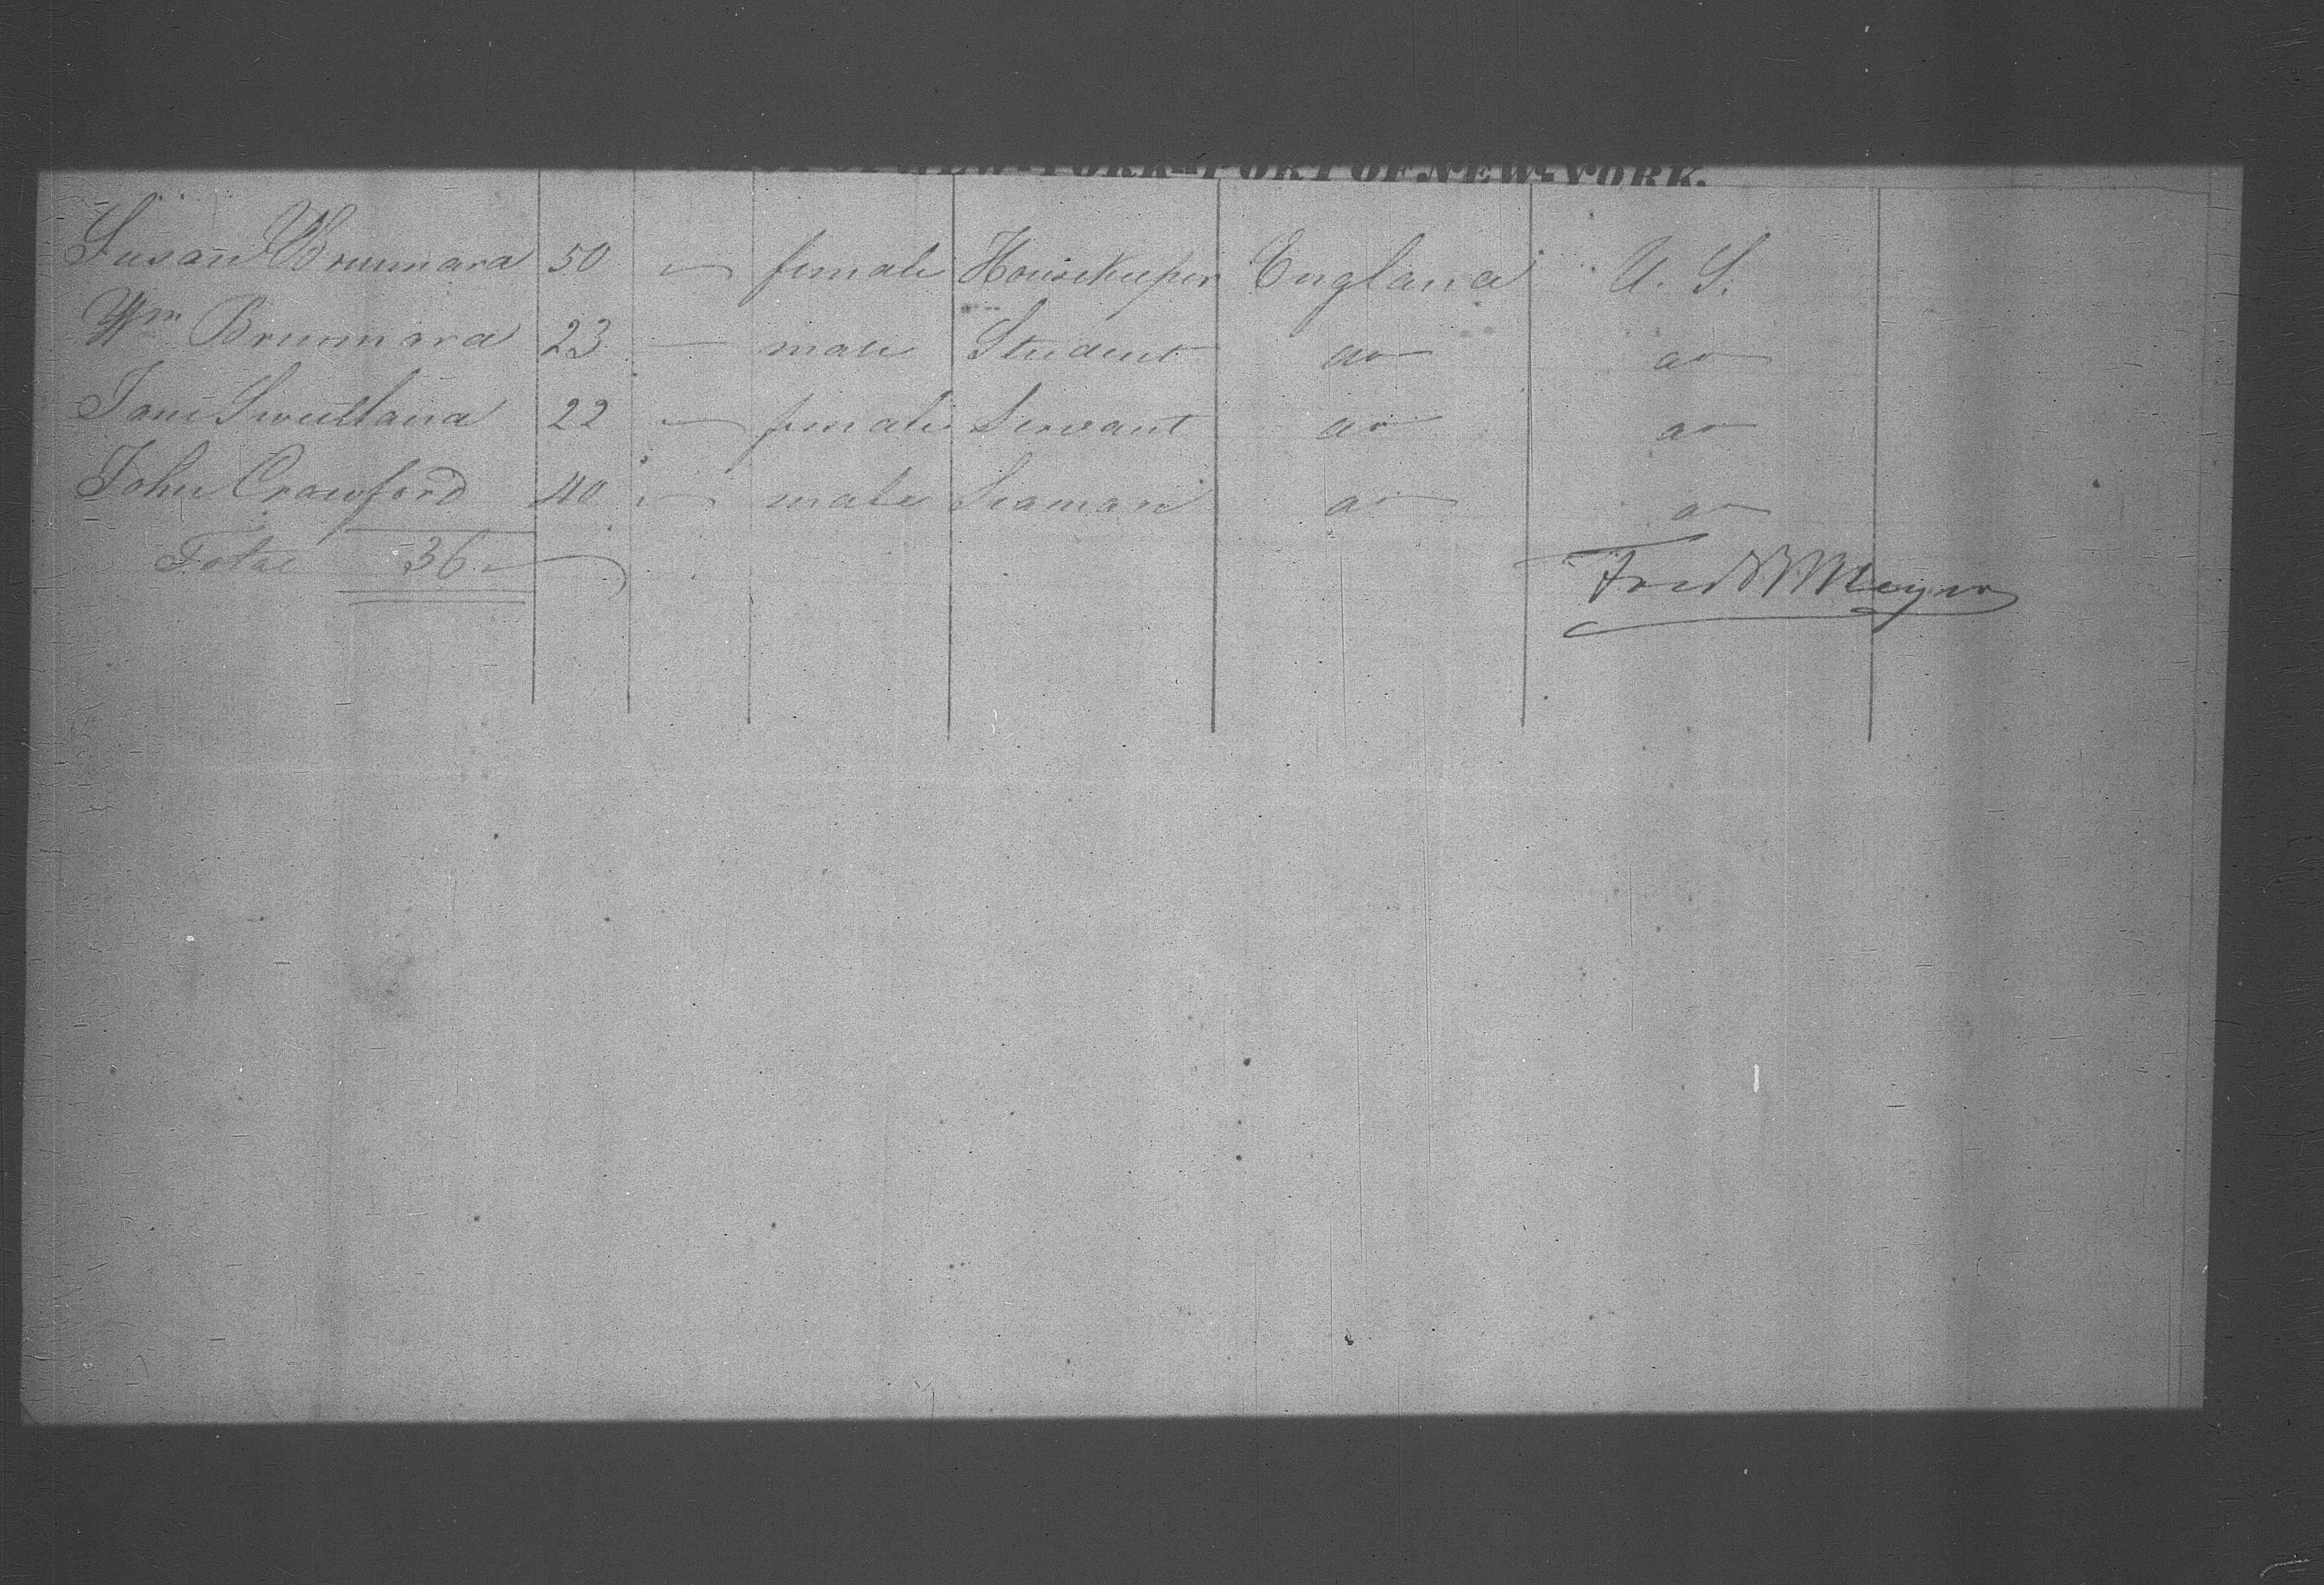 NEW-YORK—PORT OF NEW-YORK.
Susan Brummara 50 female Housekeeper England U. S.
Wm Brummara 23 — male Student do do
Jane Sweetland 22 female Servant do do
John Crawford 40 male Seaman do do
Total 36
Fred W Meyer